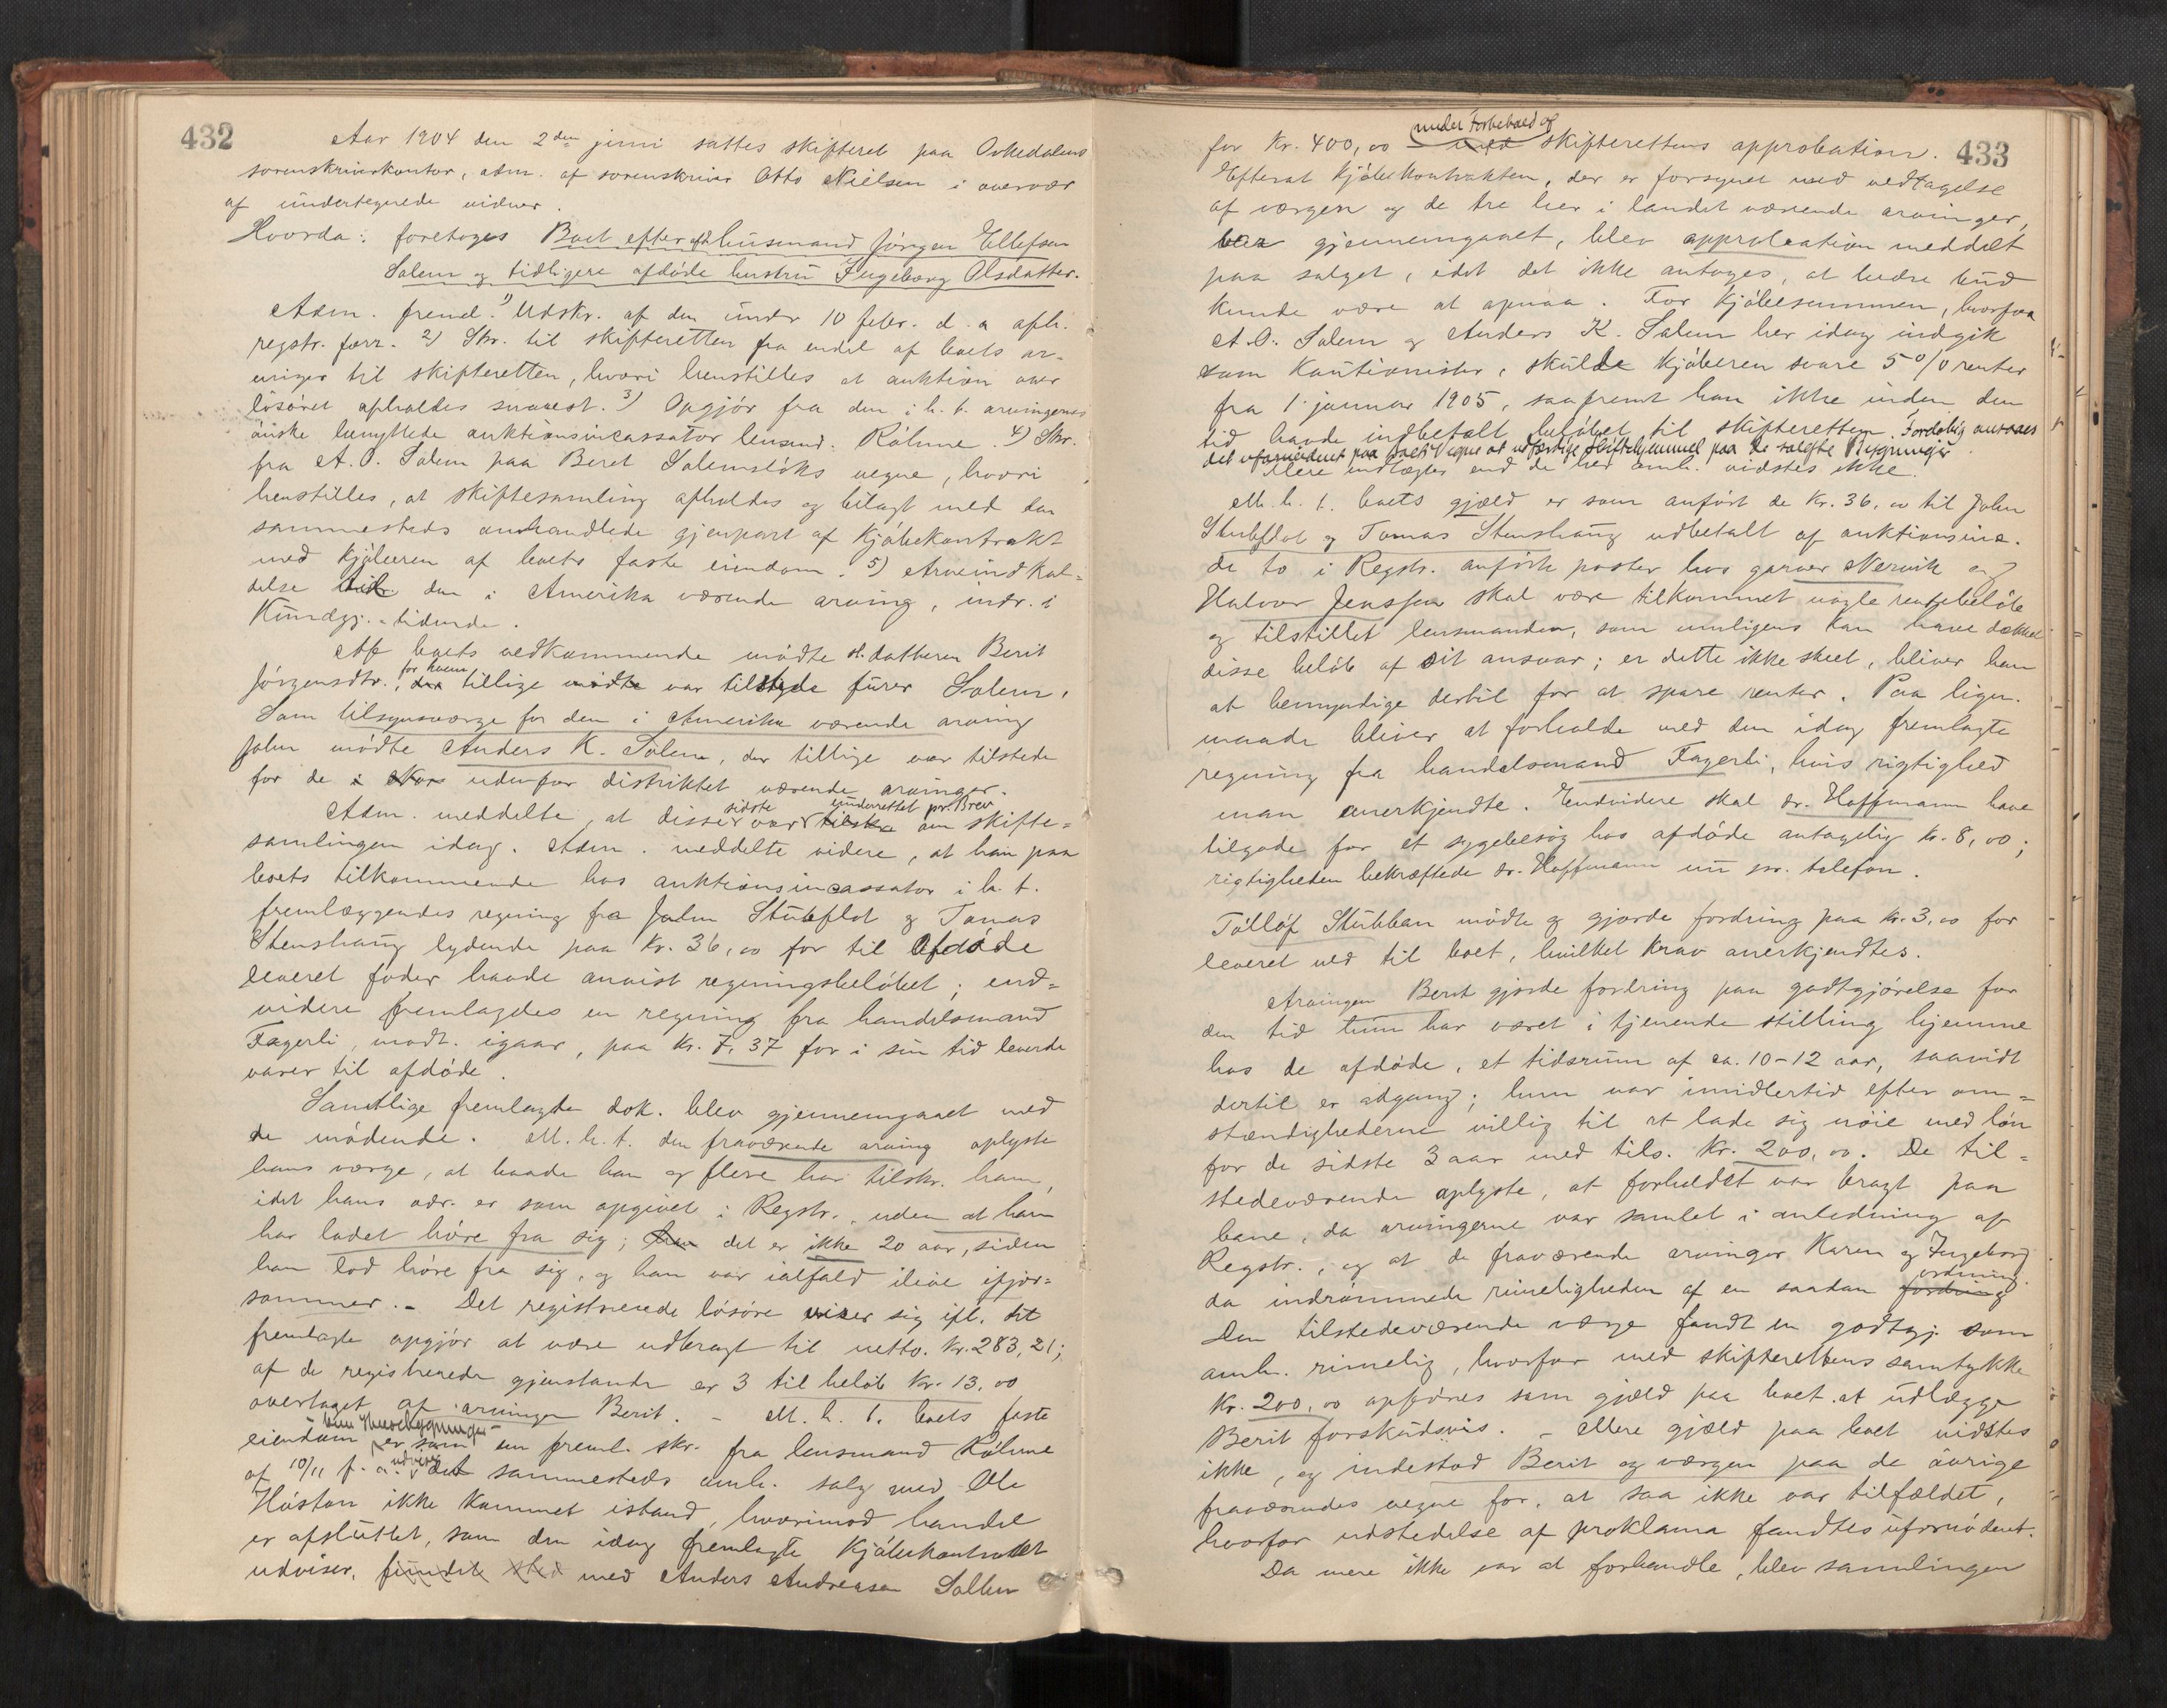 432
Aar 1904 den 2den juni sattes skifteret paa Orkedalens
sorenskriverkontor, adm. af sorenskriver Otto Nielsen i overvær
af undertegnede vidner.
Hvorda: foretoges Boet efter afd. husmand Jörgen Ellefsen
Solem og tidligere afdöde hustru Ingeborg Olsdatter.
Adm. freml. 1) Udskr. af den under 10 febr. d. a. afh.
regstr. forr. 2) Skr. til skifteretten fra endel af boets ar-
vinger til skifteretten, hvori henstilles at auktion over
lösöret afholdes snarest. 3) Opgjör fra den i h. t. arvingernes
önske benyttede auktionsincassator lensmd. Röhme. 4) Skr.
fra A. O. Solem paa Beret Solemslöks vegne, hvori
henstilles, at skiftesamling afholdes og bilagt med den
sammesteds omhandlede gjenpart af kjöbekontrakt
med kjöberen af boets faste eiendom. 5) Arveindkal-
delse den i Amerika værende arving, indr. i
Kundgj.-tidende.
Af boets vedkommende mödte st. datteren Berit
Jörgensdtr., for hvem tillige mödte var tilstede fürer Solem,
Som tilsynsværge for den i Amerika værende arving
John mödte Anders K. Solem, der tillige var tilstede
for de i udenfor distriktet værende arvinger.
Adm. meddelte, at disse sidste var underrettet pr. Brev om skifte-
samlingen idag. Adm. meddelte videre, at han paa
boets tilkommende hos auktionsincassator i h. t.
fremlæggendes regning fra John Stubflot og Tomas
Stenshaug lydende paa Kr. 36,00 for til afdöde
leveret foder havde anvist regningsbelöbet; end-
videre fremlagdes en regning fra handelsmand
Fagerli, modt. igaar, paa Kr. 7,37 for i sin tid leverede
varer til afdöde.
Samtlige fremlagte dok. blev gjennemgaaet med
de mödende. M. h. t. den fraværende arving oplyste
hans værge, at baade han og flere har tilskr. ham,
idet hans adr. er som opgivet i Regstr., uden at han
har ladet höre fra sig; det er ikke 20 aar, siden
han lod höre fra sig, og han var ialfald ilive ifjor-
sommer. - Det registrerede lösöre viser sig ifl. det
fremlagte opgjör at være udbragt til netto. Kr. 283,21;
af de registrerede gjenstande er 3 til beløb Kr. 13,00
overtaget af arvingen Berit. - M. h. t. boets faste
eiendom er som en freml. skr. fra lensmand Röhme
af 10/11 f. a. udviser det sammesteds omh. salg med Ole
Höston ikke kommet istand, hvorimod handel
er afsluttet, som den idag fremlagte kjöbekontrakt
udviser, fundet sted med Anders Andreasen Sollen
433
for Kr. 400,00 under Forbehold af skifterettens approbation.
Efterat kjöbekontrakten, der er forsynet med vedtagelse
af værgen og de tre her i landet værende arvinger,
var gjennemgaaet, blev approbation meddelt
paa salget, idet det ikke antoges, at bedre bud
kunde være at opnaa. For kjöbesummen, hvorfor
A. O. Solem og Anders K. Solem her idag indgik
som kautionister, skulde kjöberen svare 5 % renter
fra 1. januar 1905, saafremt han ikke inden den
tid havde indbetalt belöbet til skifteretten. Forelöbig ansaaes
det ufornödent paa Boets Vegne at udfærdige Skiftehjemmel paa de solgte Bygninger
Flere indtægter end de her omh. vidstes ikke.
M. h. t. boets gjæld er som anfört de Kr. 36,00 til John
Stubflot og Tomas Stenshaug udbetalt af auktionsinc.
de to i Regstr. anförte poster hos garver Nervik og
Halvor Jenssen skal være tilkommet nogle rentebelöb
og tilstillet lensmanden, som muligens kan have dækket
disse belöb af sit ansvar; er dette ikke skeet, bliver han
at bemyndige dertil for at spare renter. Paa lign.
maade bliver at forholde med den idag fremlagte
regning fra handelsmand Fagerli, hvis rigtighed
man anerkjendte. Endvidere skal dr. Hoffmann have
tilgode for et sygebesög hos afdöde antagelig kr. 8,00;
rigtigheden bekræftede dr. Hoffmann nu pr. telefon.
Tölløf Stubban mödte og gjorde fordring paa kr. 3,00 for
leveret ved til boet, hvilket krav anerkjendtes.
Arvingen Berit gjorde fordring paa godtgjörelse for
den tid hun har været i tjenende stilling hjemme
hos de afdöde, et tidsrum af ca. 10-12 aar, saavidt
dertil er adgang; hun var imidlertid efter om-
stændighederne villig til at lade sig nöie med lön
for de sidste 3 aar med tils. Kr. 200,00. De til-
stedeværende oplyste, at forholdet var bragt paa
bane, da arvingerne var samlet i anledning af
Regstr., og at de fraværende arvinger Karen og Ingeborg
da indrömmede rimeligheden af en saadan fordring ordning.
Den tilstedeværende værge fandt en godtgj. som
omh. rimelig, hvorfor med skifterettens samtykke
Kr. 200,00 opföres som gjæld paa boet at udlægge
Berit forskudsvis. - Mere gjæld paa boet vidstes
ikke, og indestod Berit og værgen paa de övrige
fraværendes vegne for, at saa ikke var tilfældet,
hvorfor udstedelse af proklama fandtes ufornödent.
Da mere ikke var at forhandle, blev samlingen